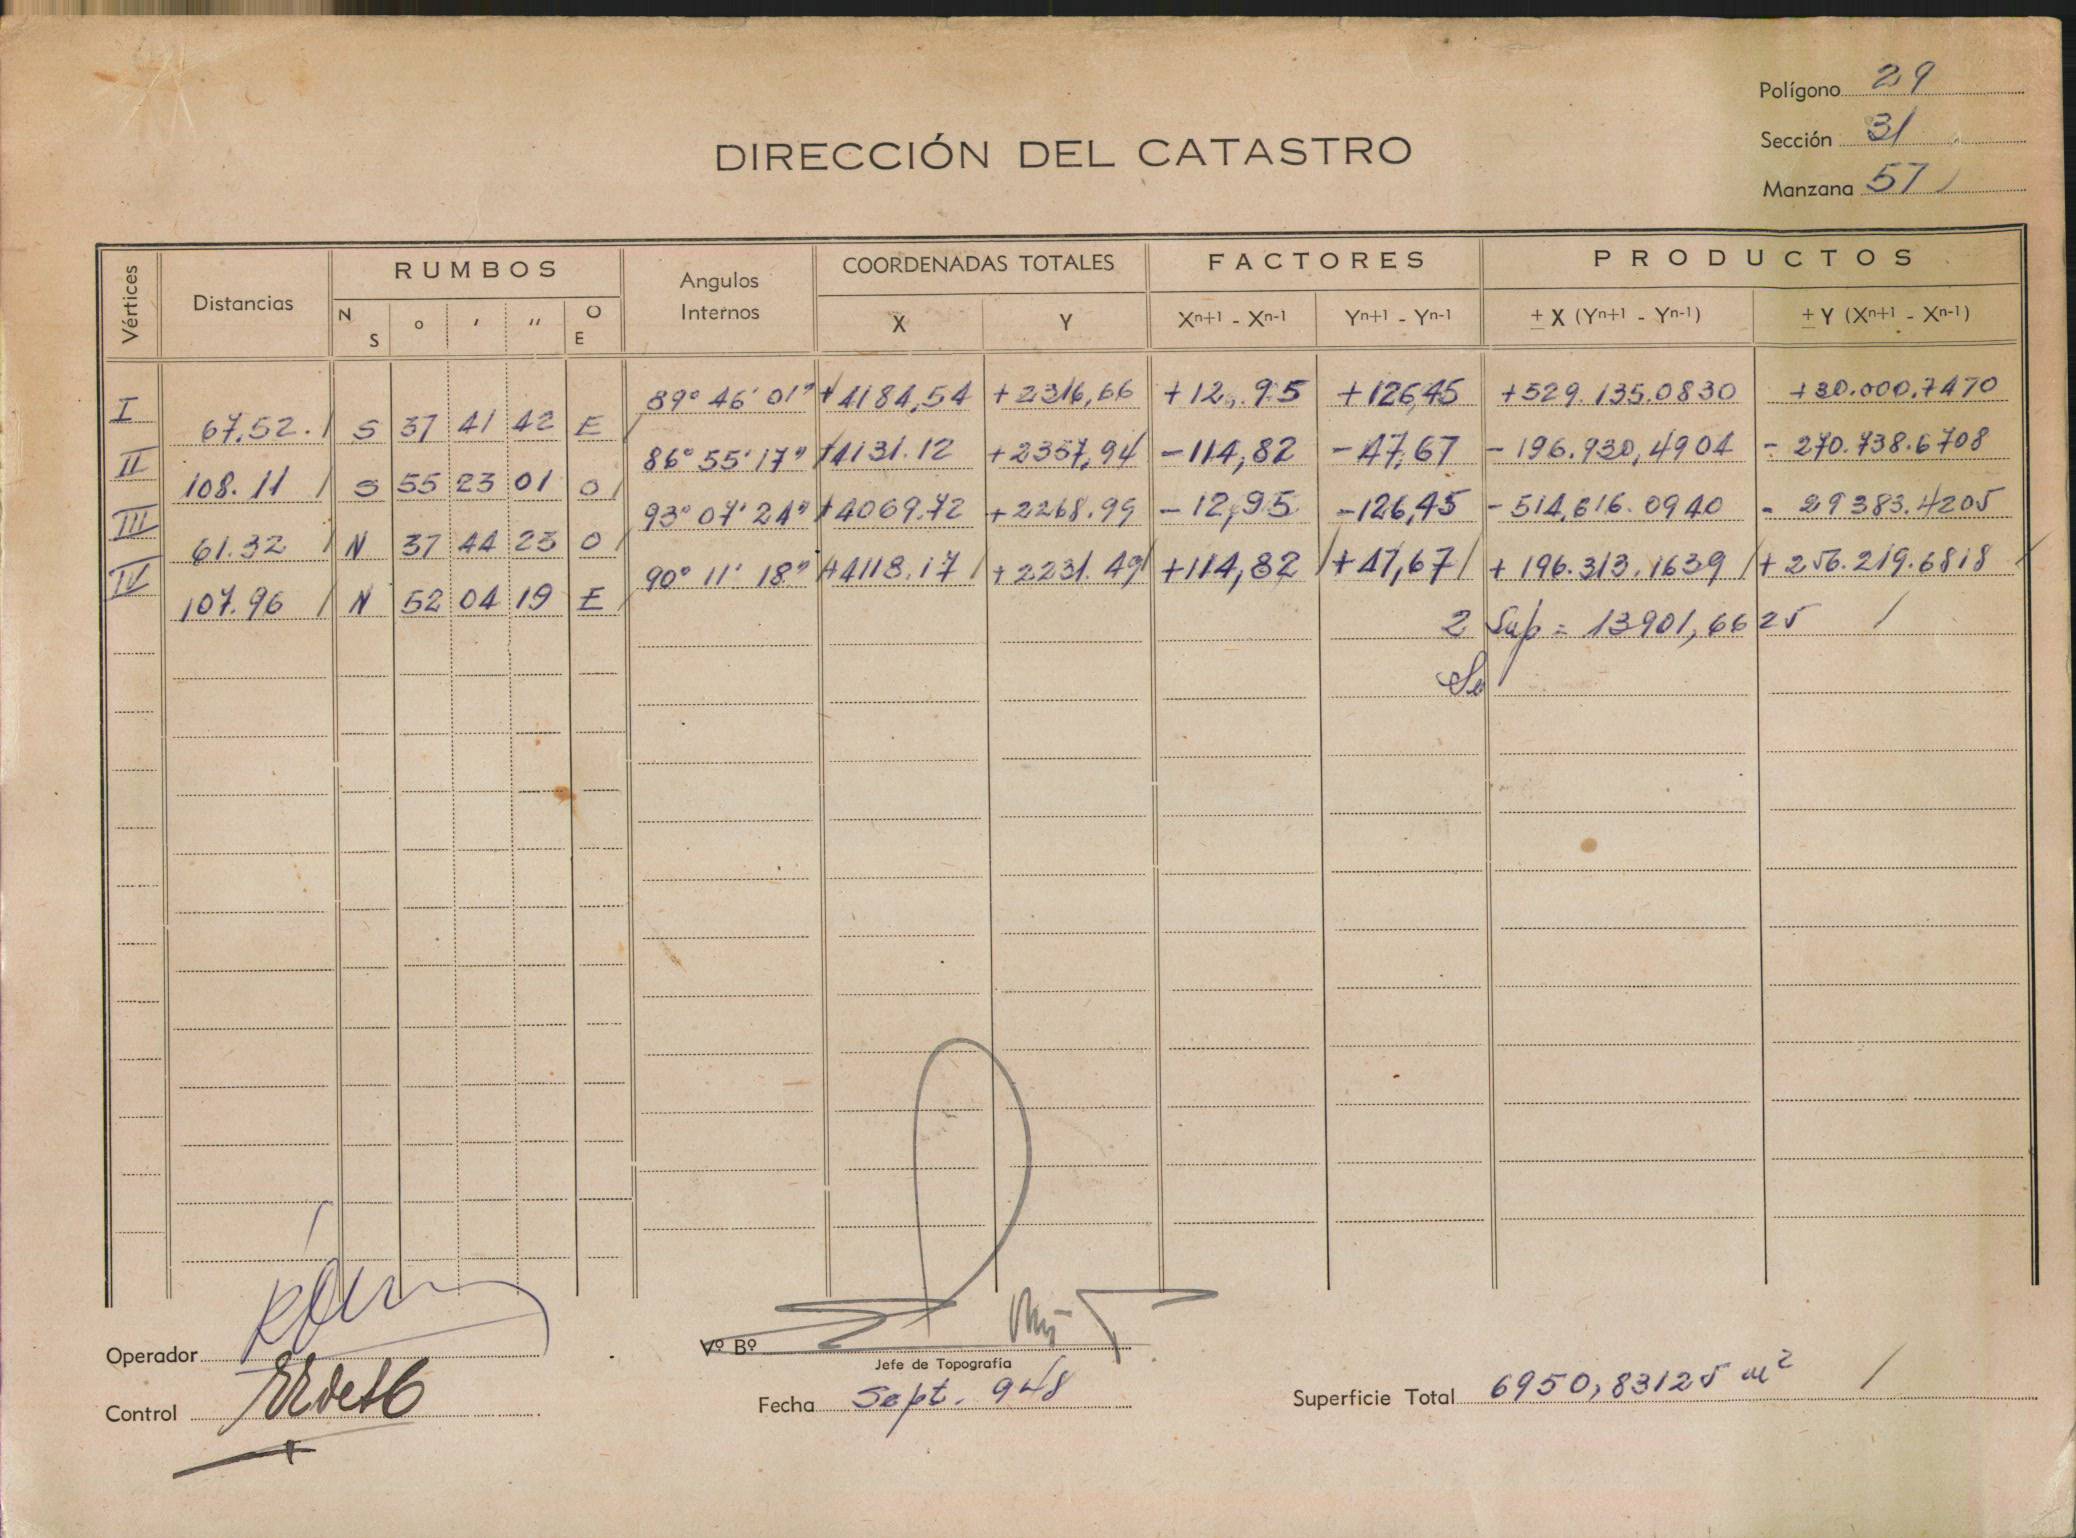 Polígono 29
Sección 31
Manzana 57
DIRECCIÓN DEL CATASTRO
Vértices Distancias RUMBOS Angulos Internos COORDENADAS TOTALES FACTORES PRODUCTOS
N S ° ' " O E X Y Xn+1 - Xn-1 Yn+1 - Yn-1 ± X (Yn+1 - Yn-1) ± Y (Xn+1 - Xn-1)
I 89° 46' 01" +4184,54 +2316,66 +12,95 +126,45 +529.135.0830 +30.000.7470
67.52 S 37 41 42 E
II 86° 55' 17" +4131.12 +2357,94 -114,82 -47,67 -196.930,4904 -270.738.6708
108.11 S 55 23 01 O
III 93° 07' 24" +4069.72 +2268.99 -12,95 -126,45 -514,616.0940 -29383.4205
61.32 N 37 44 23 O
IV 90° 11' 18" +4118.17 +2231.49 +114,82 +47,67 +196.313.1639 +256.219.6818
107.96 N 52 04 19 E
2 Sup = 13901,6625
Operador
Vº Bº
Jefe de Topografía
Control
Fecha Sept. 948
Superficie Total 6950,83125 m²